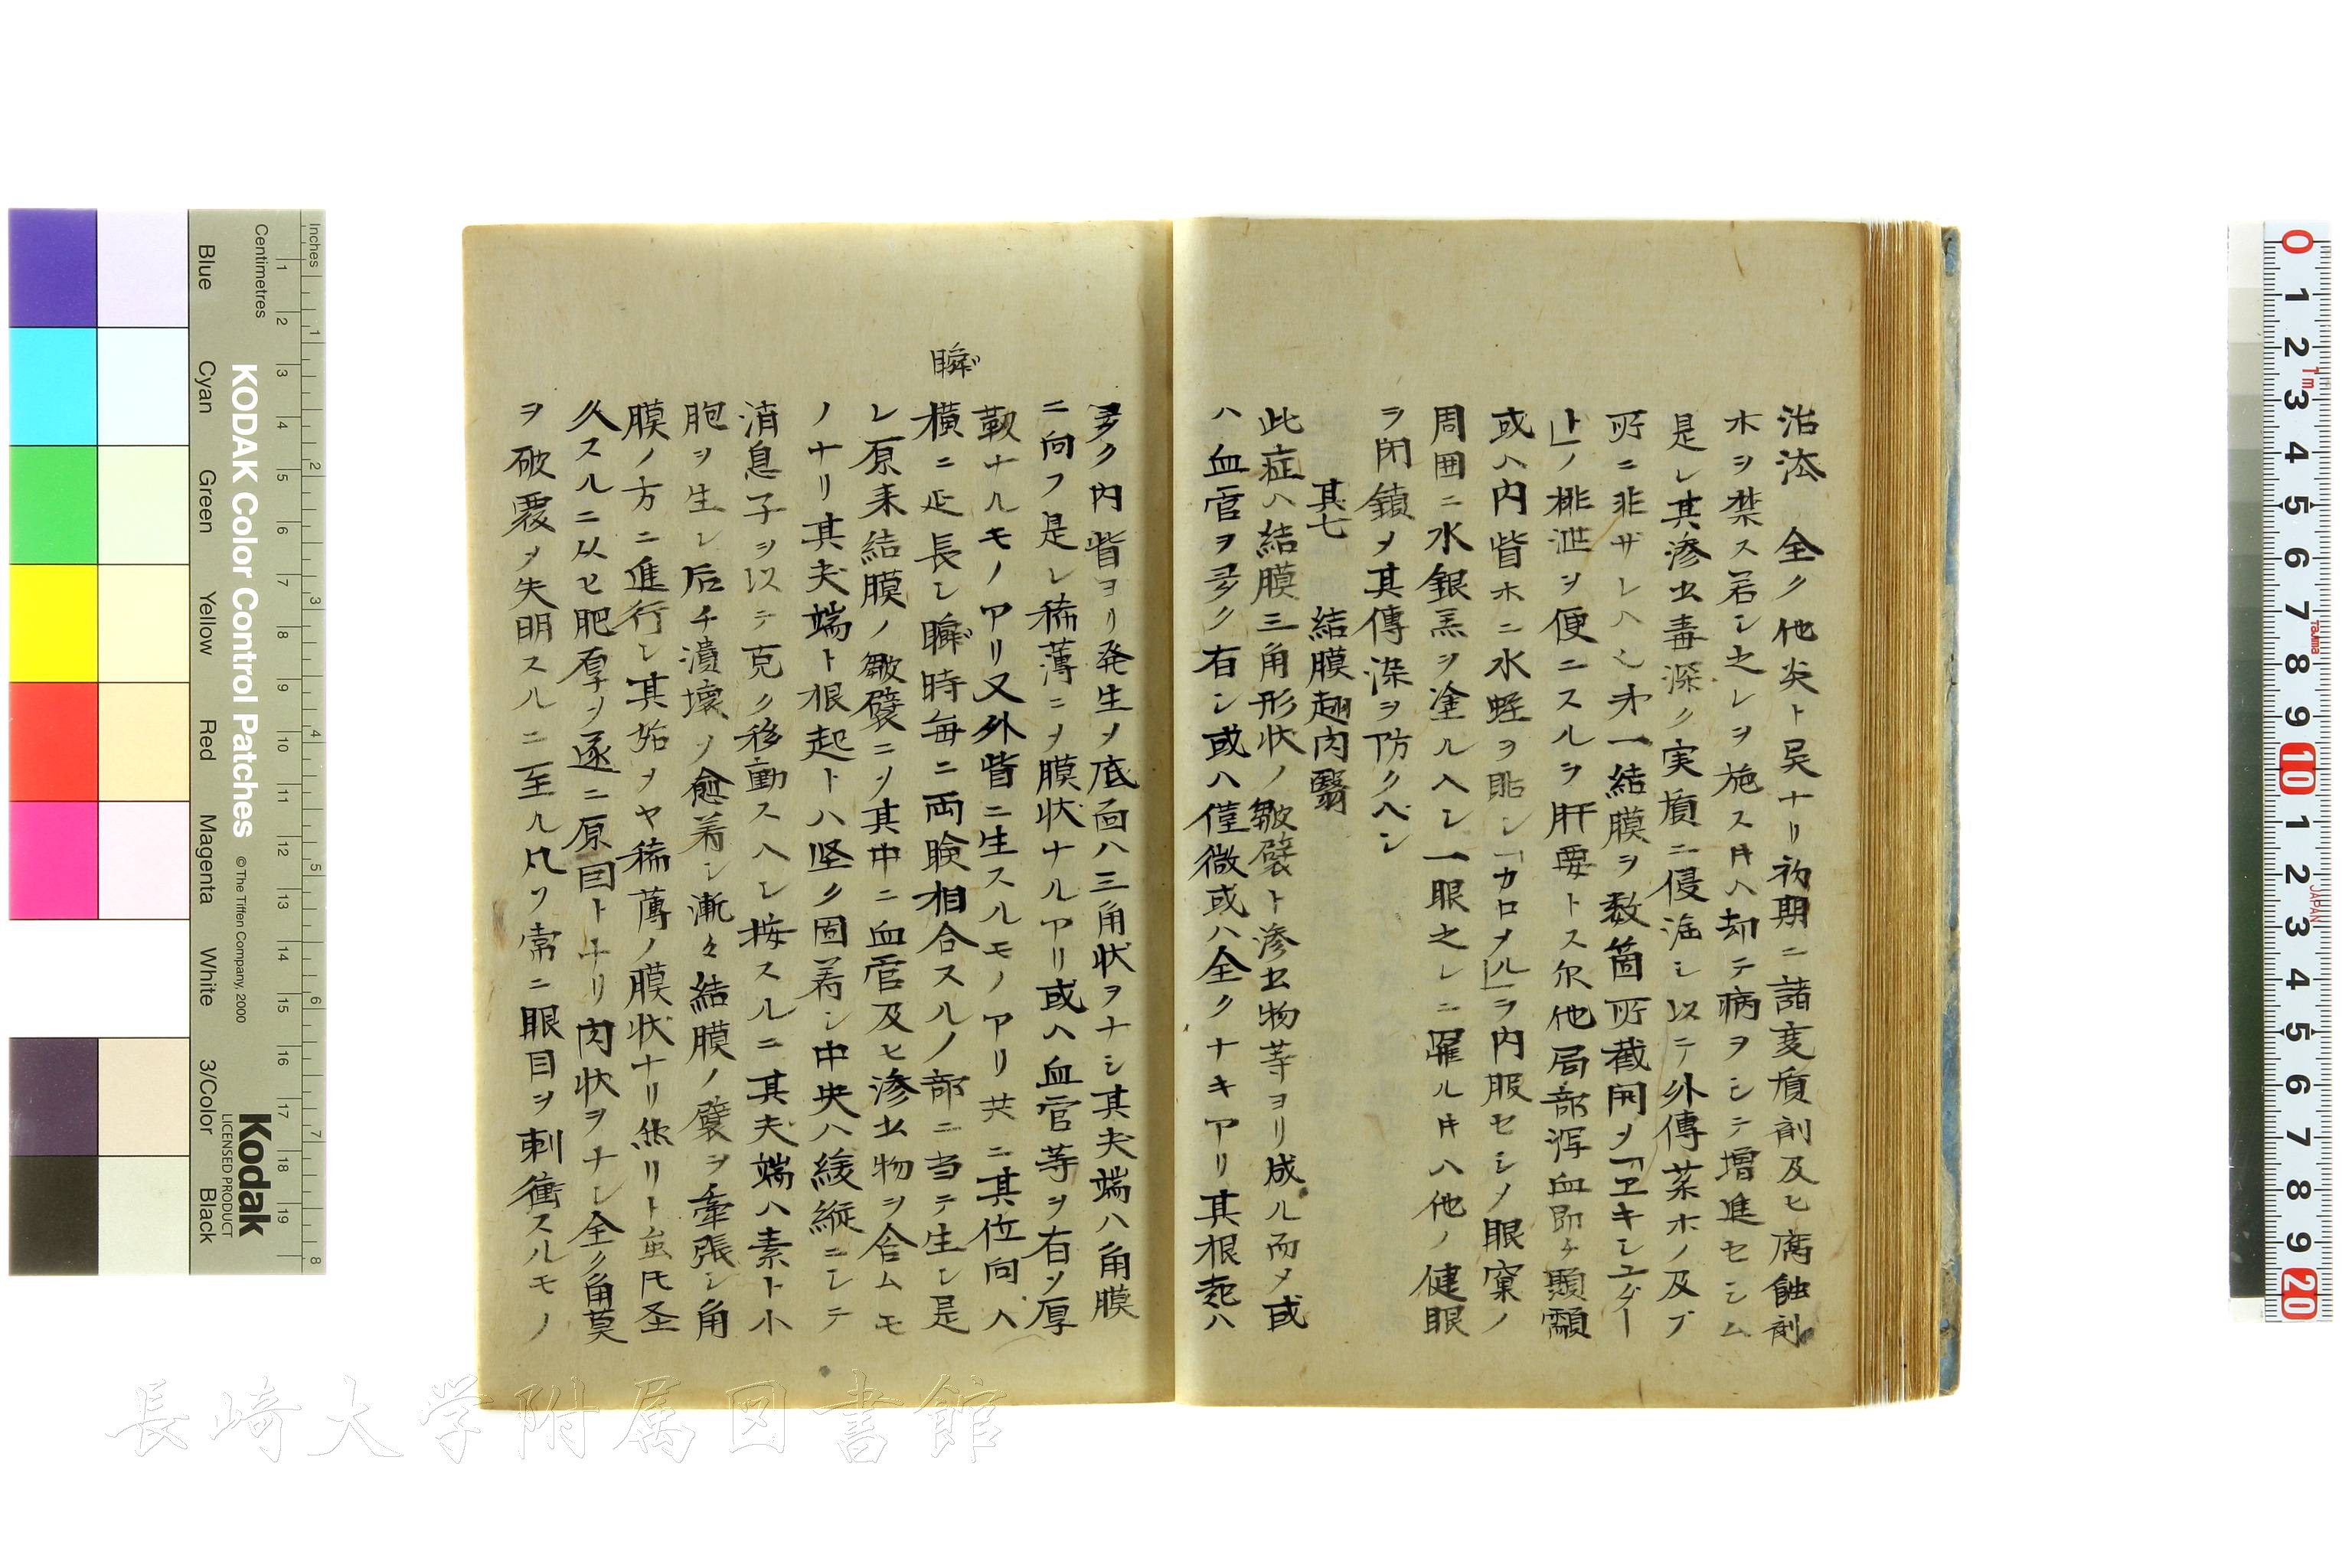 治法　全ク他炎ト異ナリ初期ニ諸変質剤及ヒ腐蝕剤
ホヲ禁ス若シ之レヲ施スキハ却テ病ヲシテ増進セシム
是レ其滲出毒深ク実質ニ侵淫シ以テ外傳薬ホノ及ブ
所ニ非ザレハ也 一結膜ヲ数箇所截開ノ「エキシュダー
ト」ノ排泄ヲ便ニスルヲ肝要トス尓他局部瀉血即チ顳顬
或ハ内眥ホニ水蛭ヲ貼シ「カロメル」ヲ内服セシメ眼窠ノ
周囲ニ水銀羔ヲ塗ルヘシ一眼之レニ罹ルキハ他ノ健眼
ヲ閉鎖メ其傳染ヲ防クベシ
其七　結膜翅肉翳
此症ハ結膜三角形状ノ皺襞ト滲出物等ヨリ成ル而メ或
ハ血管ヲ多ク有シ或ハ僅微或ハ全クナキアリ其根起ハ
多ク内眥ヨリ発生メ底面ハ三角状ヲナシ其尖端ハ角膜
ニ向フ是レ稀薄ニメ膜状ナルアリ或ハ血管等ヲ有メ厚
靱ナルモノアリ又外眥ニ生スルモノアリ共ニ其位向ハ
瞬
横ニ延長シ瞬時毎ニ両瞼相合スルノ部ニ当テ生シ是
レ原来結膜ノ皺襞ニメ其中ニ血管及ヒ滲出物ヲ含ムモ
ノナリ其尖端ト根起トハ堅ク固着シ中央ハ緩縦ニシテ
消息子ヲ以テ克ク移動スヘシ按スルニ其尖端ハ素ト小
胞ヲ生シ后チ潰壊メ愈着シ漸々結膜ノ襞ヲ牽張シ角
膜ノ方ニ進行シ其始メヤ稀薄ノ膜状ナリ然リト虽㔫圣
久スルニ从ヒ肥厚メ逐ニ原因トナリ肉状ヲナシ全ク角莫
ヲ破覆メ失明スルニ至ル凡ソ常ニ眼目ヲ刺衝スルモノ
KODAK Color Control Patches
© The Tiffen Company, 2000
Kodak
LICENSED PRODUCT
Inches
Centimetres
Blue
Cyan
Green
Yellow
Red
Magenta
White
3/Color
Black
長崎大学附属図書館